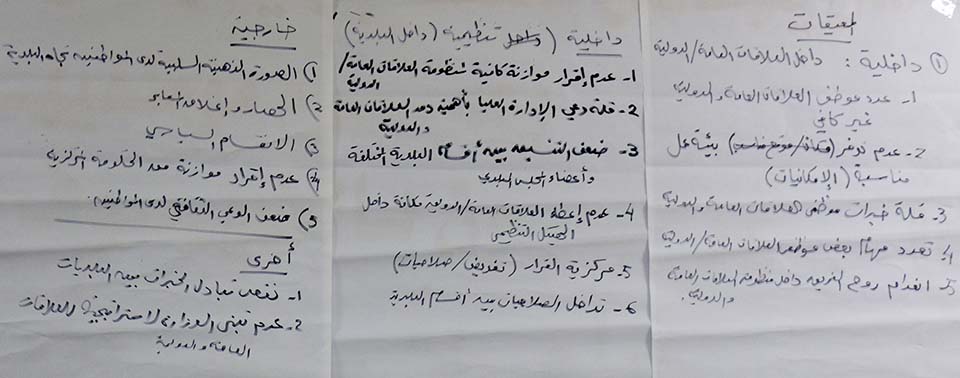 المعيقات
① داخلية: داخل العلاقات العامة/الدولية
1- عدد موظفي العلاقات العامة والدولية
غير كافي
2- عدم توفر (مكان/موقع مناسب) بيئة عمل
مناسبة (الإمكانيات)
3- قلة خبرات موظفي العلاقات العامة والدولية
4) تعدد مهام بعض موظفي العلاقات العامة/الدولية
5- انعدام روح الفريق داخل منظومة العلاقات العامة
والدولية.
داخلية (تنظيمية (داخل البلدية)
1- عدم إقرار موازنة كافية لمنظومة العلاقات العامة/
الدولية
2- قلة وعي الإدارة العليا بأهمية دور العلاقات العامة
والدولية
3- ضعف التنسيق بين أقسام البلدية المختلفة
وأعضاء المجلس البلدي
4- عدم إعطاء العلاقات العامة/الدولية مكانة داخل
الهيكل التنظيمي
5- مركزية القرار (تفويض/صلاحيات)
6- تداخل الصلاحيات بين أقسام البلدية
خارجية
1) الصورة الذهنية السلبية لدى المواطنين تجاه البلدية
2) الحصار وإغلاق المعابر
3) الانقسام السياسي
4) عدم إقرار موازنة من الحكومة المركزية
5) ضعف الوعي الثقافي لدى المواطنين.
أخرى
1- نقص تبادل الخبرات بين البلديات
2- عدم تبني الوزارة لاستراتيجية العلاقات
العامة والدولية